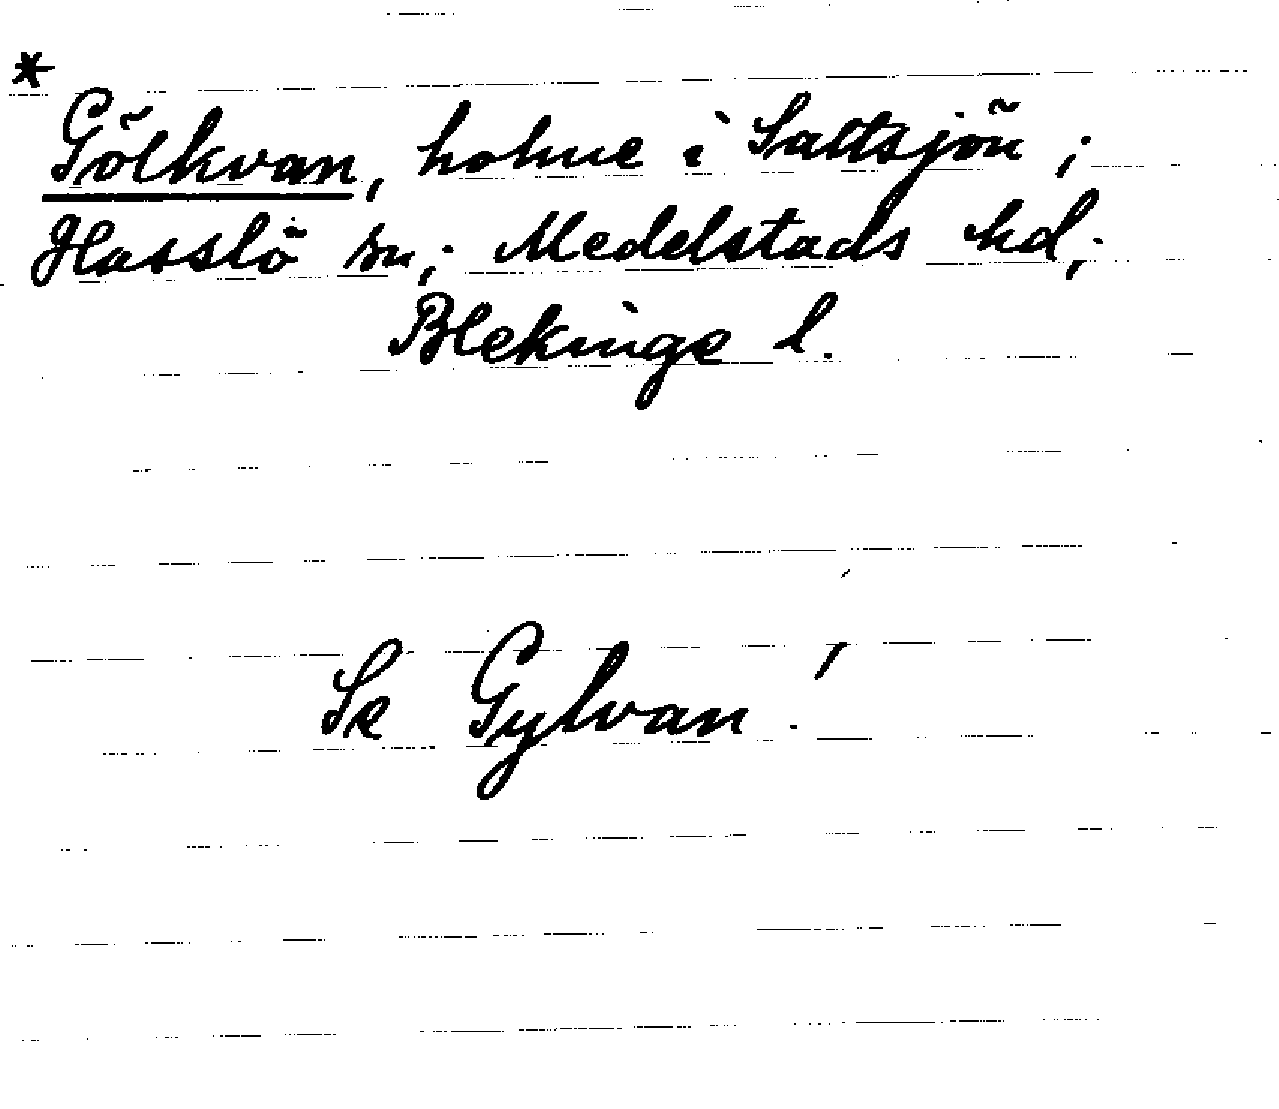 *
Gölkvan, holme i Saltsjön ;
Hasslö sn; Medelstads hd;
Blekinge l.
Se Gylvan !